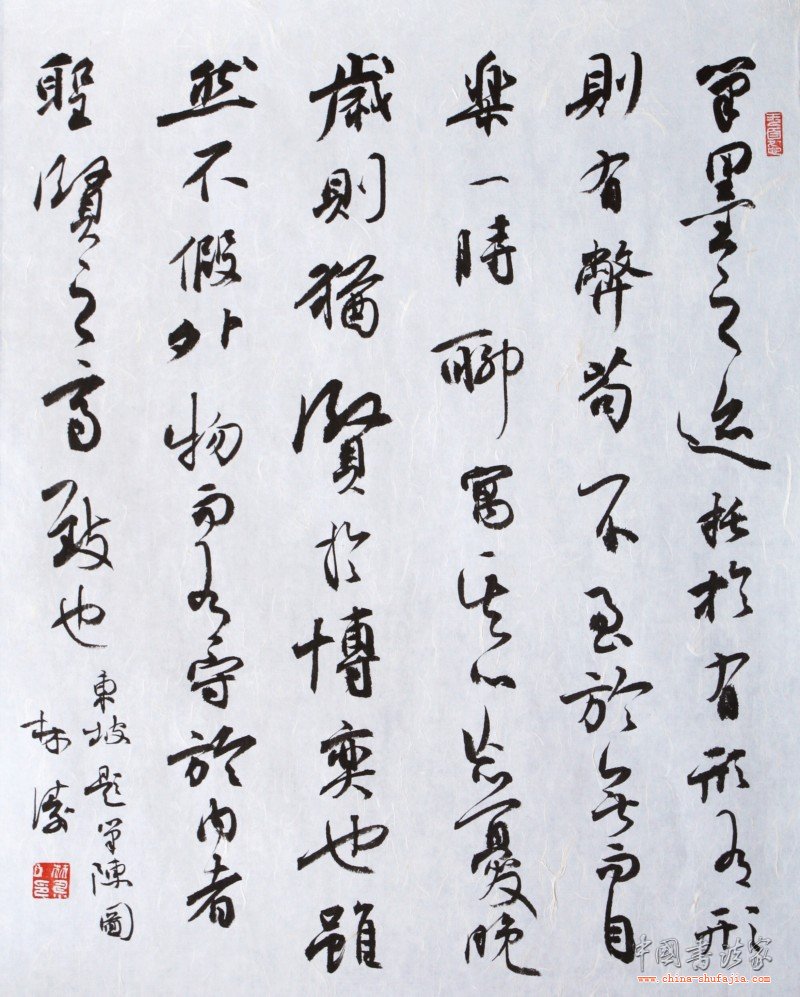 筆墨之迹托於有形有形
則有弊苟不至於無而自
樂一時聊寓其心忘憂晚
歲則猶賢於博奕也雖
然不假外物而有守於內者
聖賢之高致也
東坡題筆陳圖
林濤
中國書法家
www.china-shufajia.com